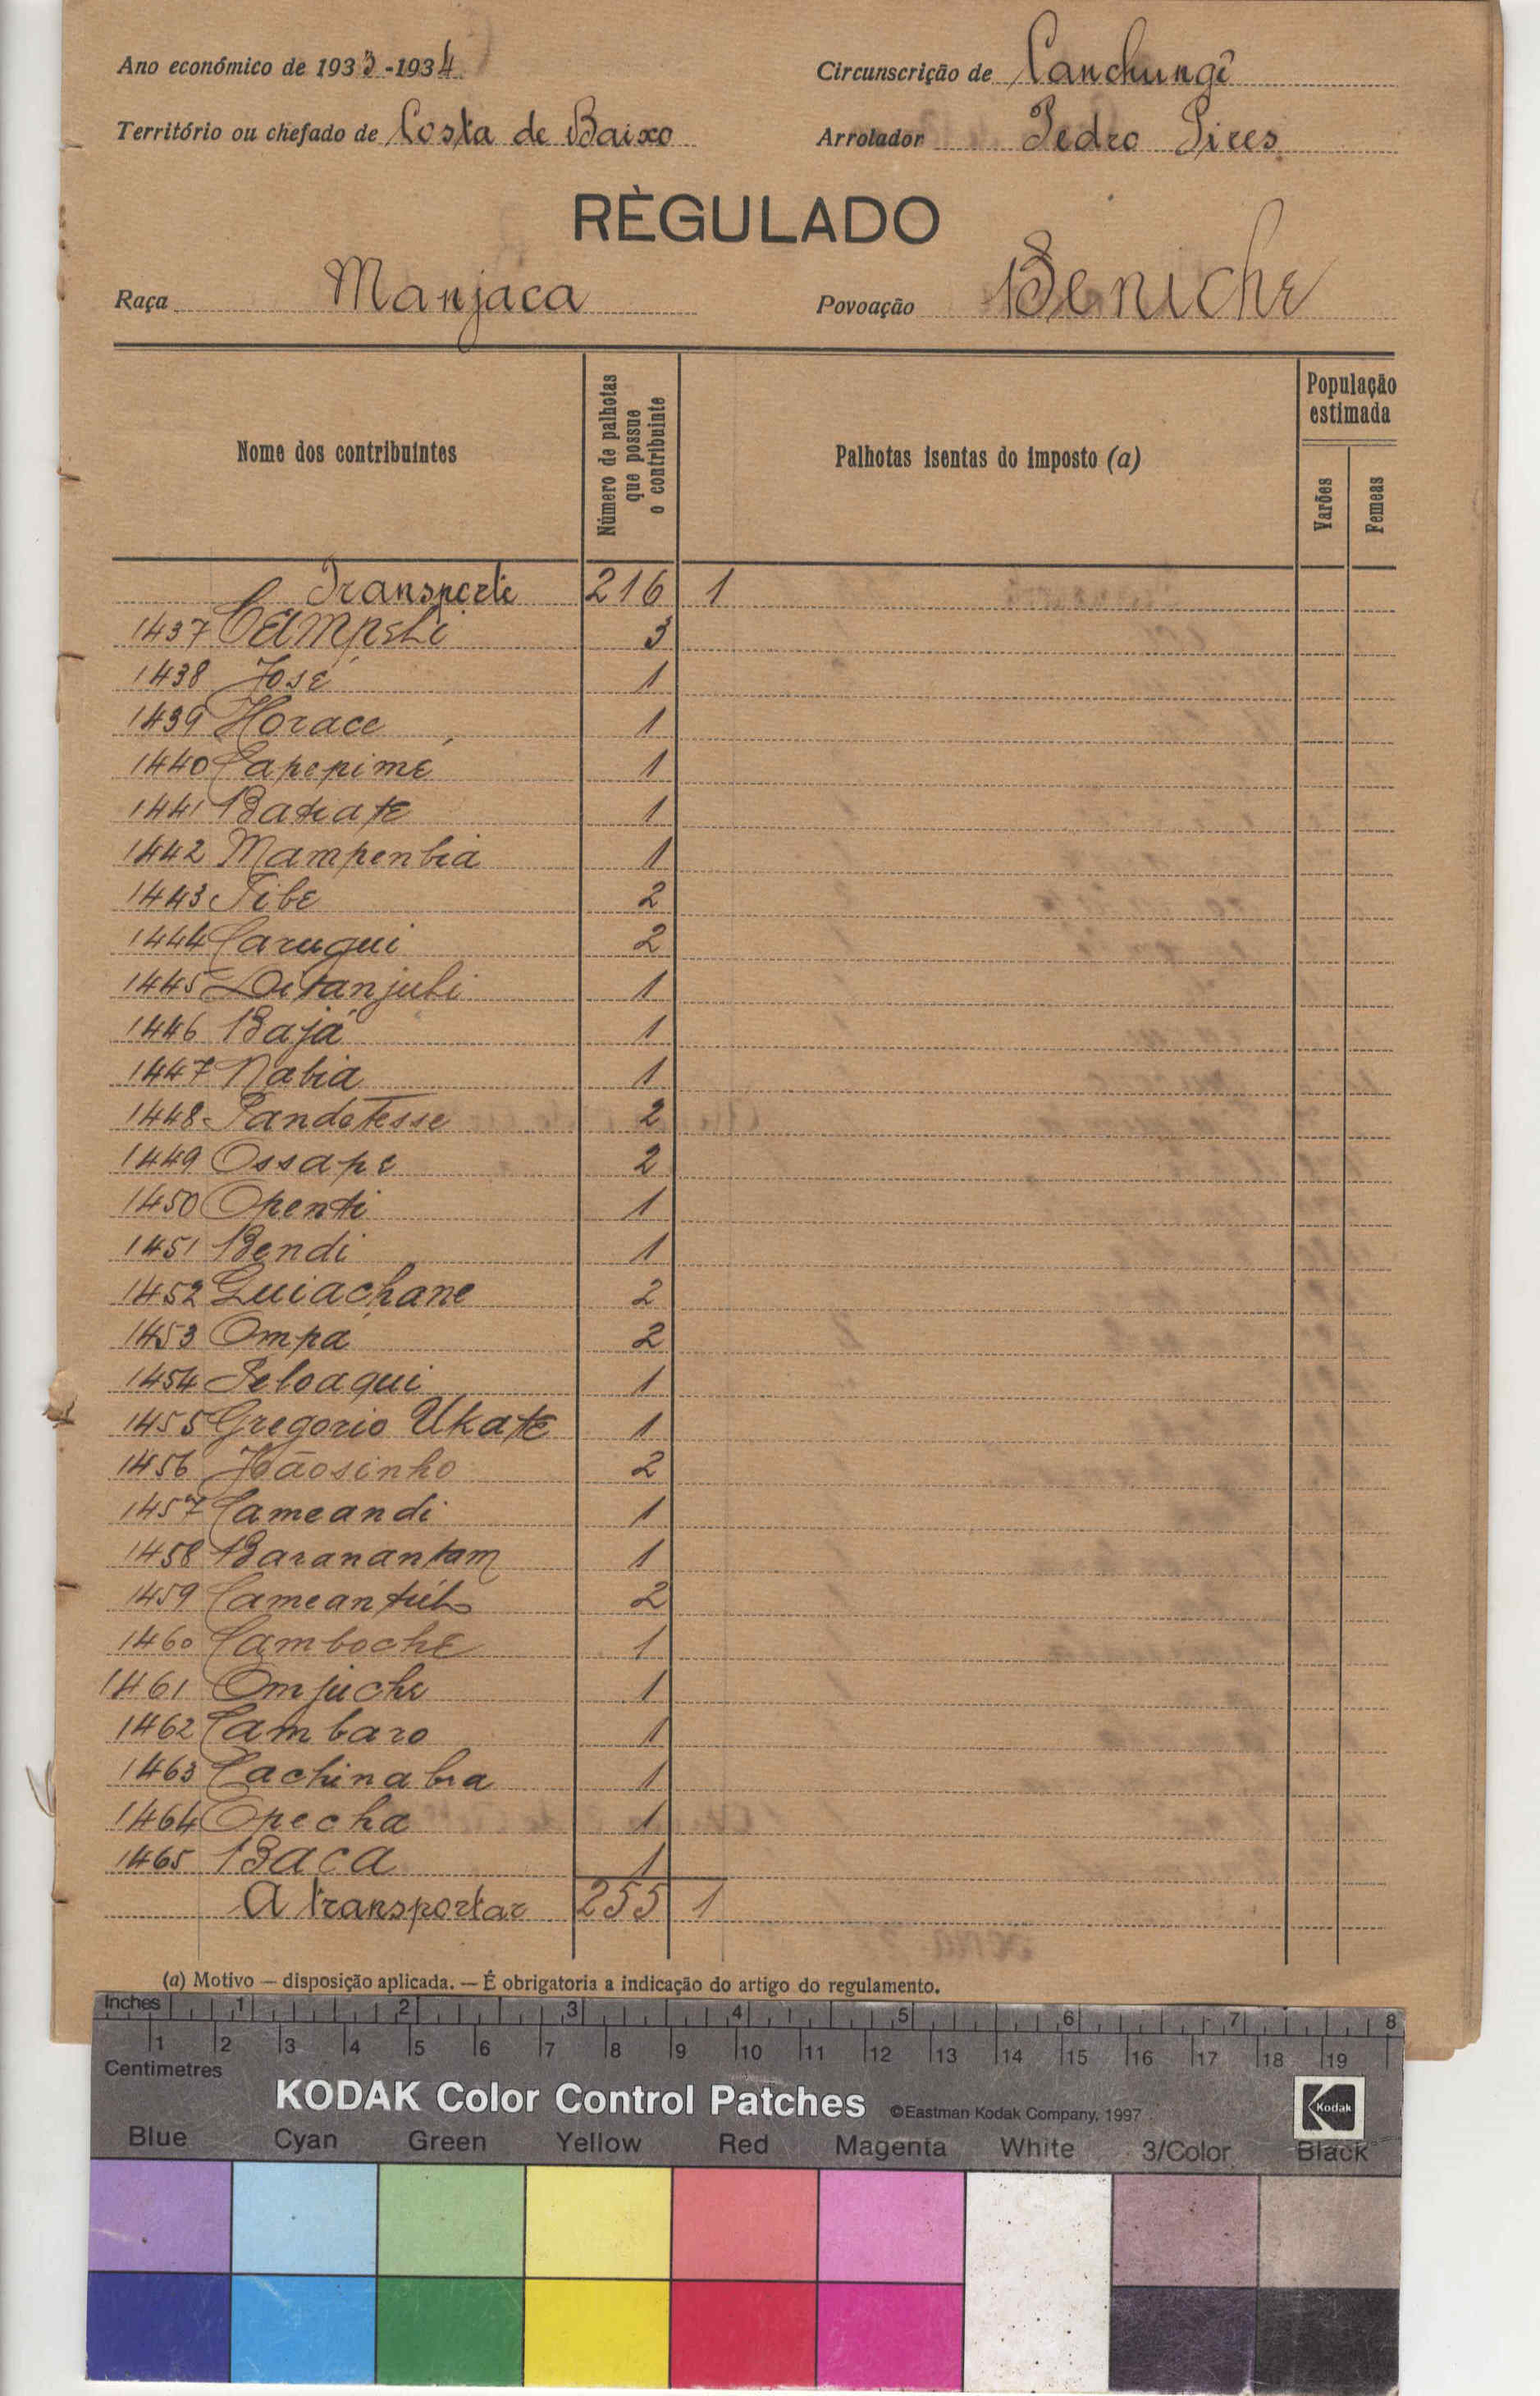 Ano económico de 1933-1934
Circunscrição de Canchungo
Território ou chefado de Costa de Baixo
Arrolador Pedro Pires
RÈGULADO
Raça Manjaca
Povoação Beniche
Nome dos contribuintes
Número de palhotas que possue o contribuinte
Palhotas isentas do imposto (a)
População estimada
Varões
Femeas
Transporte 216 1
1437 Campeli 3
1438 José 1
1439 Horace 1
1440 Capepimé 1
1441 Batiate 1
1442 Mampenbia 1
1443 Tibe 2
1444 Carugui 2
1445 Ditanjubi 1
1446 Bajá 1
1447 Nabia 1
1448 Pandetesse 2
1449 Ossape 2
1450 Openti 1
1451 Bendi 1
1452 Guiachane 2
1453 Ompá 2
1454 Peloaqui 1
1455 Gregorio Ukate 1
1456 Joãosinho 2
1457 Cameandi 1
1458 Baranantam 1
1459 2
1460 Camboche 1
1461 Omjuche 1
1462 Cambaro 1
1463 Cachinabra 1
1464 Opecha 1
1465 Baca 1
A transportar 255 1
(a) Motivo — disposição aplicada. — É obrigatoria a indicação do artigo do regulamento.
Inches 1 2 3 4 5 6 7 8
1 2 3 4 5 6 7 8 9 10 11 12 13 14 15 16 17 18 19
Centimetres
KODAK Color Control Patches ©Eastman Kodak Company, 1997 Kodak
Blue Cyan Green Yellow Red Magenta White 3/Color Black